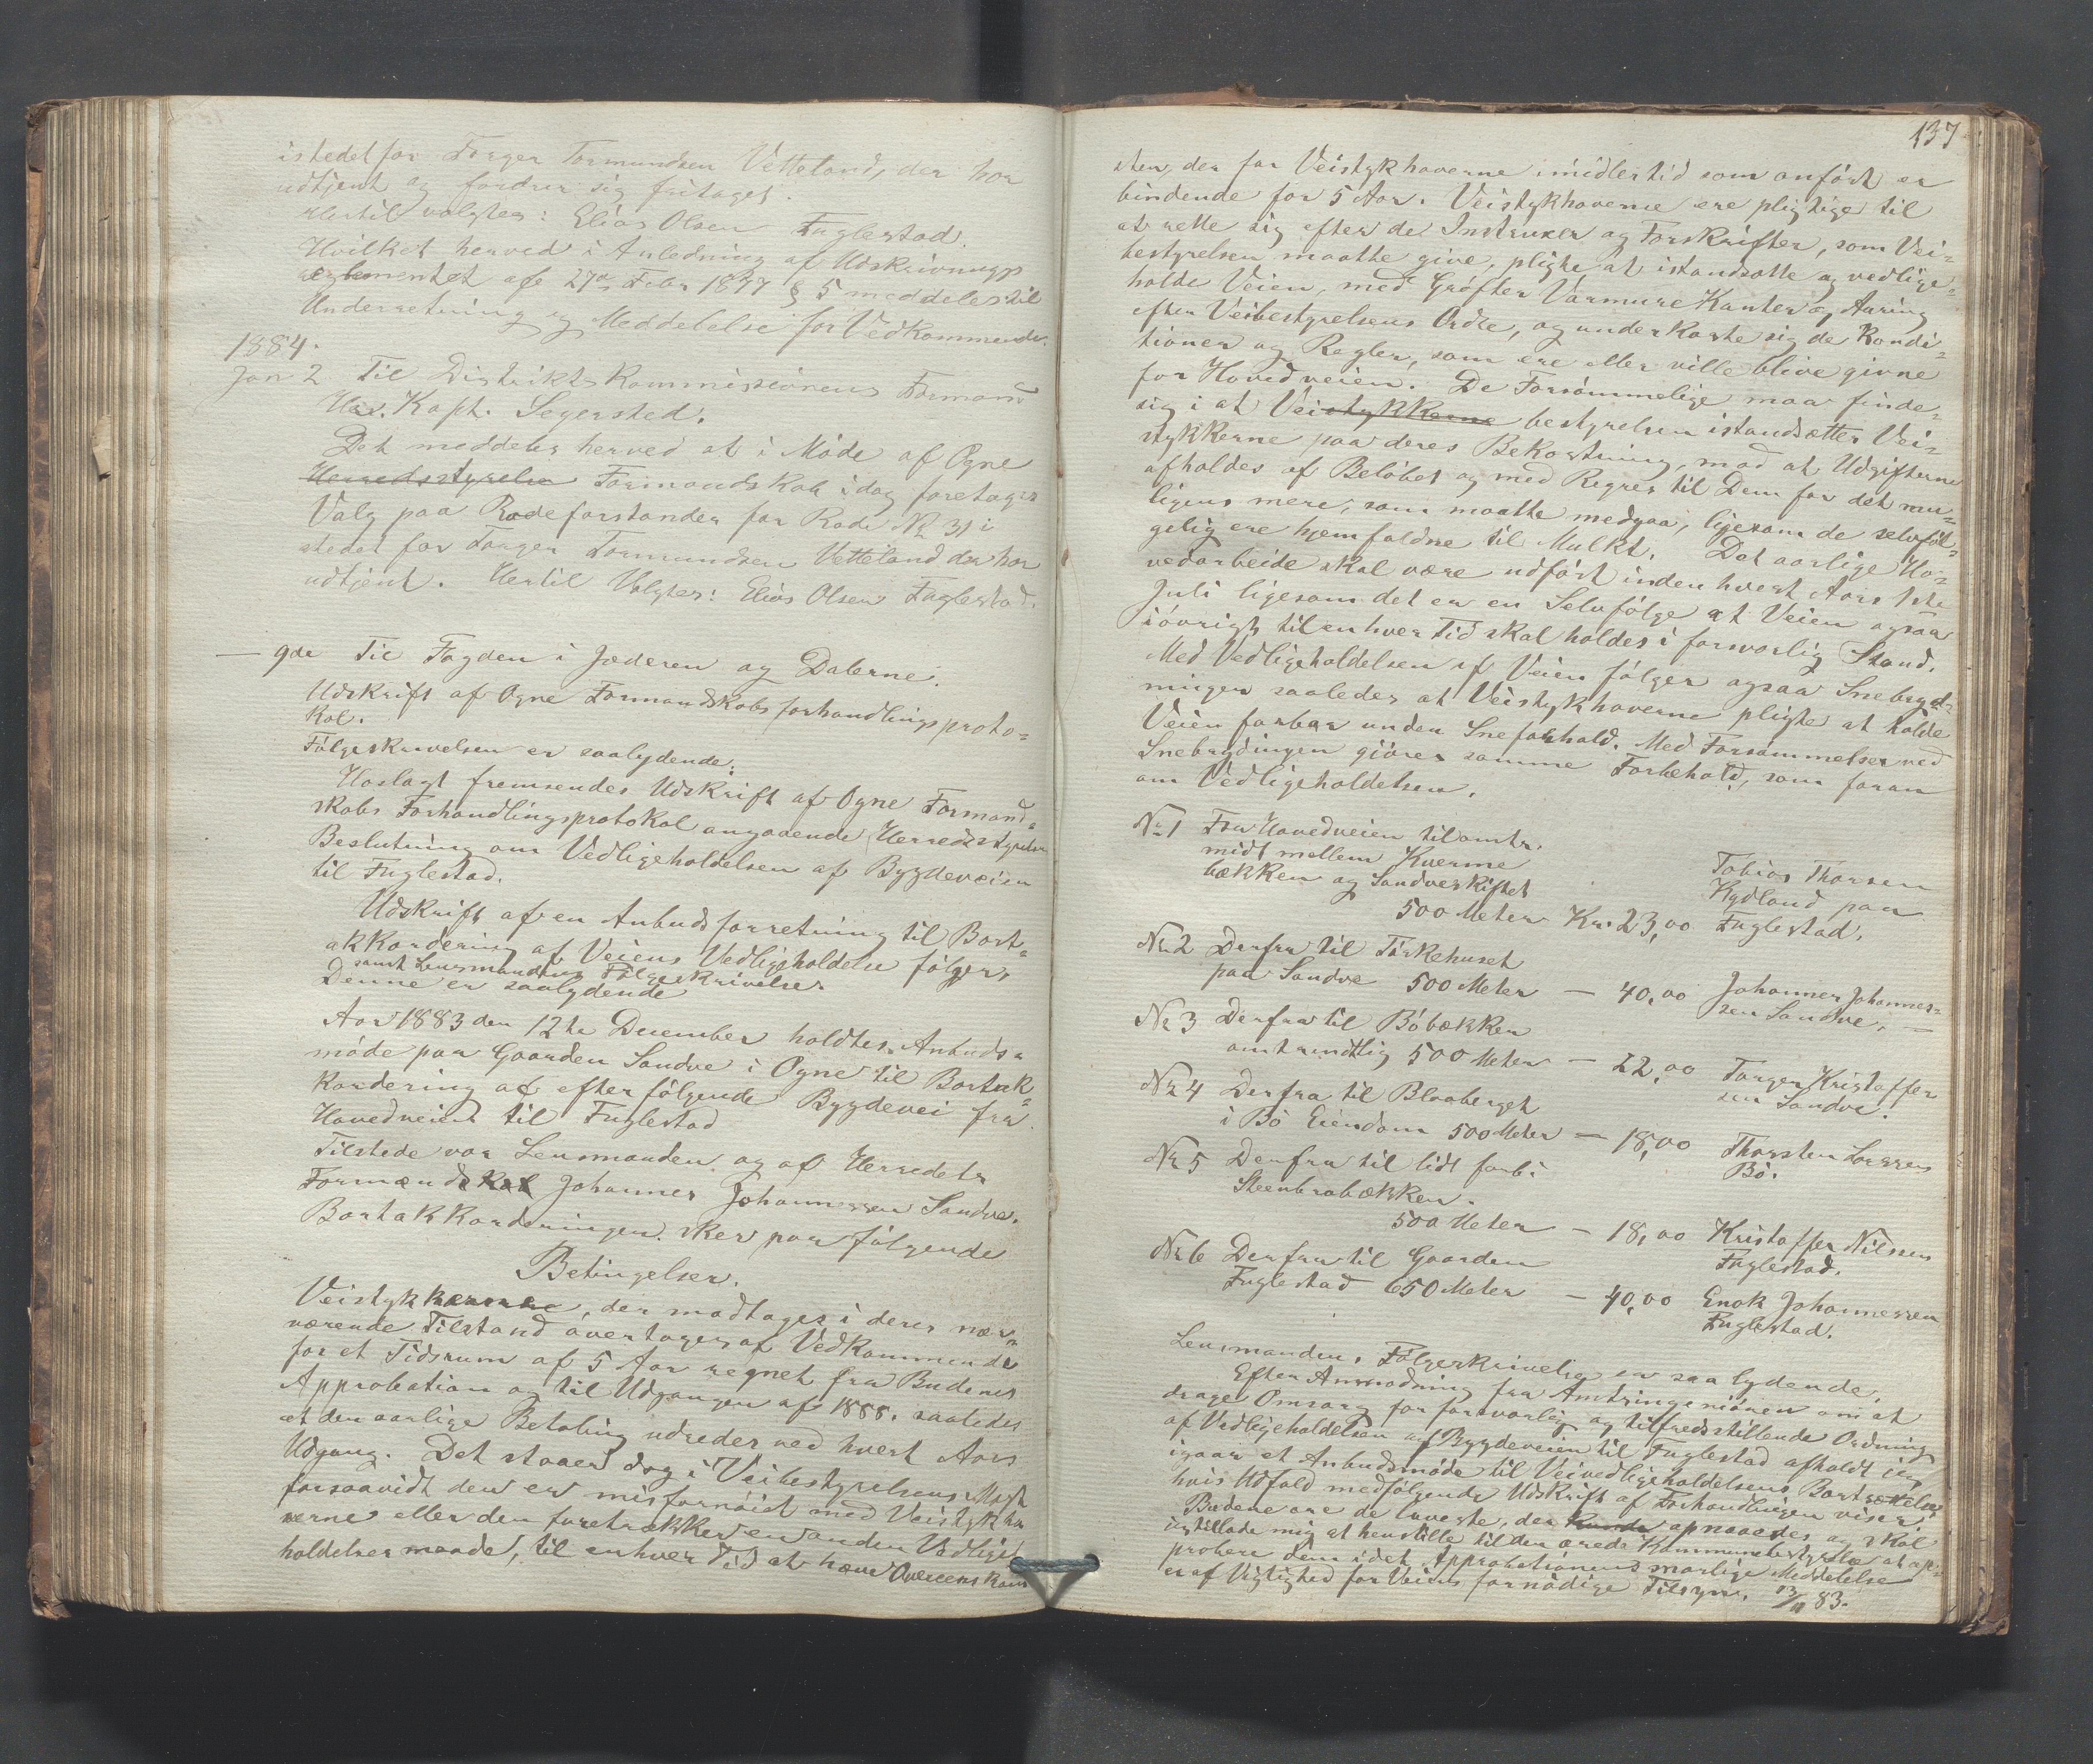 istedetfor Torger Tormundsen Vetteland, der har
udtjent og fordrer sig fritaget.
Hertil valgtes: Elias Olsen Fuglestad.
Hvilket herved i Anledning af Udskrivnings
reglementet afe 27de Febr 1877 § 5 meddeles til
Underretning og Meddelelse for Vedkommende.
1884.
Jan 2 Til Distriktskommissionens Formand
Hr. Kapt. Segersted.
Det meddeles herved at i Møde af Ogne
Herredsstyrelse Formandskab idag foretoges
Valg paa Rodeforstander for Rode No 31 i
stedet for Torger Tormundsen Vetteland der har
udtjent. Hertil Valgtes: Elias Olsen Fuglestad.
— 9de Til Fogden i Jæderen og Dalerne.
Udskrift af Ogne Formandskabs forhandlingsproto=
kol.
Følgeskrivelsen er saalydende:
Hoslagt fremsendes Udskrift af Ogne Formand=
skabs Forhandlingsprotokol angaaende Herredsstyrelsens
Beslutning om Vedligeholdelsen af Bygdeveien
til Fuglestad.
Udskrift af en Anbudsforretning til Bort=
akkordering af Veiens Vedligeholdelse følger,
samt Lensmandens Følgeskrivelse.
Denne er saalydende
Aar 1883 den 12te December holdtes Anbuds=
møde paa Gaarden Sandve i Ogne til Bortak=
kordering af efterfølgende Bygdevei fra
Hovedveien til Fuglestad
Tilstede var Lensmanden og af Herredets
Formændskab Johannes Johannessen Sandve.
Bortakkorderingen sker paa følgende
Betingelser.
Veistykkerne, der modtages i deres nær=
værende Tilstand overtages af Vedkommende
for et Tidsrum af 5 Aar regnet fra Budenes
Approbation og til Udgangen af 1888. saaledes
at den aarlige Betaling udredes ved hvert Aars
Udgang. Det staaer dog i Veibestyrelsens Magt
forsaavidt den er misfornøiet med Veistykha
verne eller den foretrækker en anden Vedlige
holdelses maade, til enhver Tid at hæve Overenskom
137
sten, der for Veistykhaverne imidlertid som anført er
bindende for 5 Aar. Veistykhaverne ere pligtige til
at rette sig efter de Instruxer og Forskrifter, som Vei=
bestyrelsen maatte give, pligte at istandsætte og vedlige=
holde Veien, med Grøfter Varmure Kanter og Auring
efter Veibestyrelsens Ordre, og underkaste sig de Kondi=
tioner og Regler, som ere eller ville blive givne
for Hovedveien. De Forsømmelige maa finde=
sig i at Veistykkerne bestyrelsen istandsætter Vei=
stykkerne paa deres Bekostning, mod at Udgifterne
afholdes af Beløbet og med Regres til Dem for det mu=
ligens mere, som maatte medgaa, ligesom de selvføl=
gelig ere hjemfaldne til Mulkt. Det aarlige Ho=
vedarbeide skal være udført inden hvert Aars 1ste
Juli ligesom det er en Selvfølge at Veien ogsaa
iøvrigt til enhver Tid skal holdes i forsvarlig Stand.
Med Vedligeholdelsen af Veien følger ogsaa Snebryd=
ningen saaledes at Veistykhaverne pligte at holde
Veien farbar under Sneforhold. Med Forsømmelser ved
Snebrydingen gjøres samme Forbehold, som foran
om Vedligeholdelsen.
No 1 Fra Hovedveien til omtr.
midt mellem Kverme
bækken og Sandveskiftet
500 Meter Kr. 23,00 Tobias Thorsen
Hydland paa
Fuglestad.
No 2 Derfra til Tørkehuset
paa Sandve 500 Meter — 40,00 Johannes Johannes=
sen Sandve. —
No 3 Derfra til Bøbækken
omtrendtlig 500 Meter — 22,00 Torger Kristoffer
sen Sandve.
No 4 Derfra til Blaaberget
i Bø Eiendom 500 Meter — 18,00 Thorsten Larsens
Bø.
No 5 Derfra til lidt forbi
Steenbrobækken.
500 Meter — 18,00 Kristoffer Nilsens
Fuglestad.
No 6 Derfra til Gaarden
Fuglestad 650 Meter — 40,00 Enok Johannessen
Fuglestad.
Lensmandens Følgeskrivelse er saa lydende,
Efter Anmodning fra Amtsingeniøren om at
drage Omsorg for forsvarlig og tilfredsstillende Ordning
af Vedligeholdelsen af Bygdeveien til Fuglestad afholdt jeg
igaar et Anbudsmøde til Veivedligeholdelsens Bortsættelse
hvis Udfald medfølgende Udskrift af Forhandlingen viser.
Budene ere de laveste, der kunde opnaaedes og skal
jeg tillade mig at henstille til den ærede Kommunebestyrelse at ap=
probere dem idet Approbationens snarlige Meddelelse
er af Vigtighed for Veiens fornødige Tilsyn. 13/11 83.